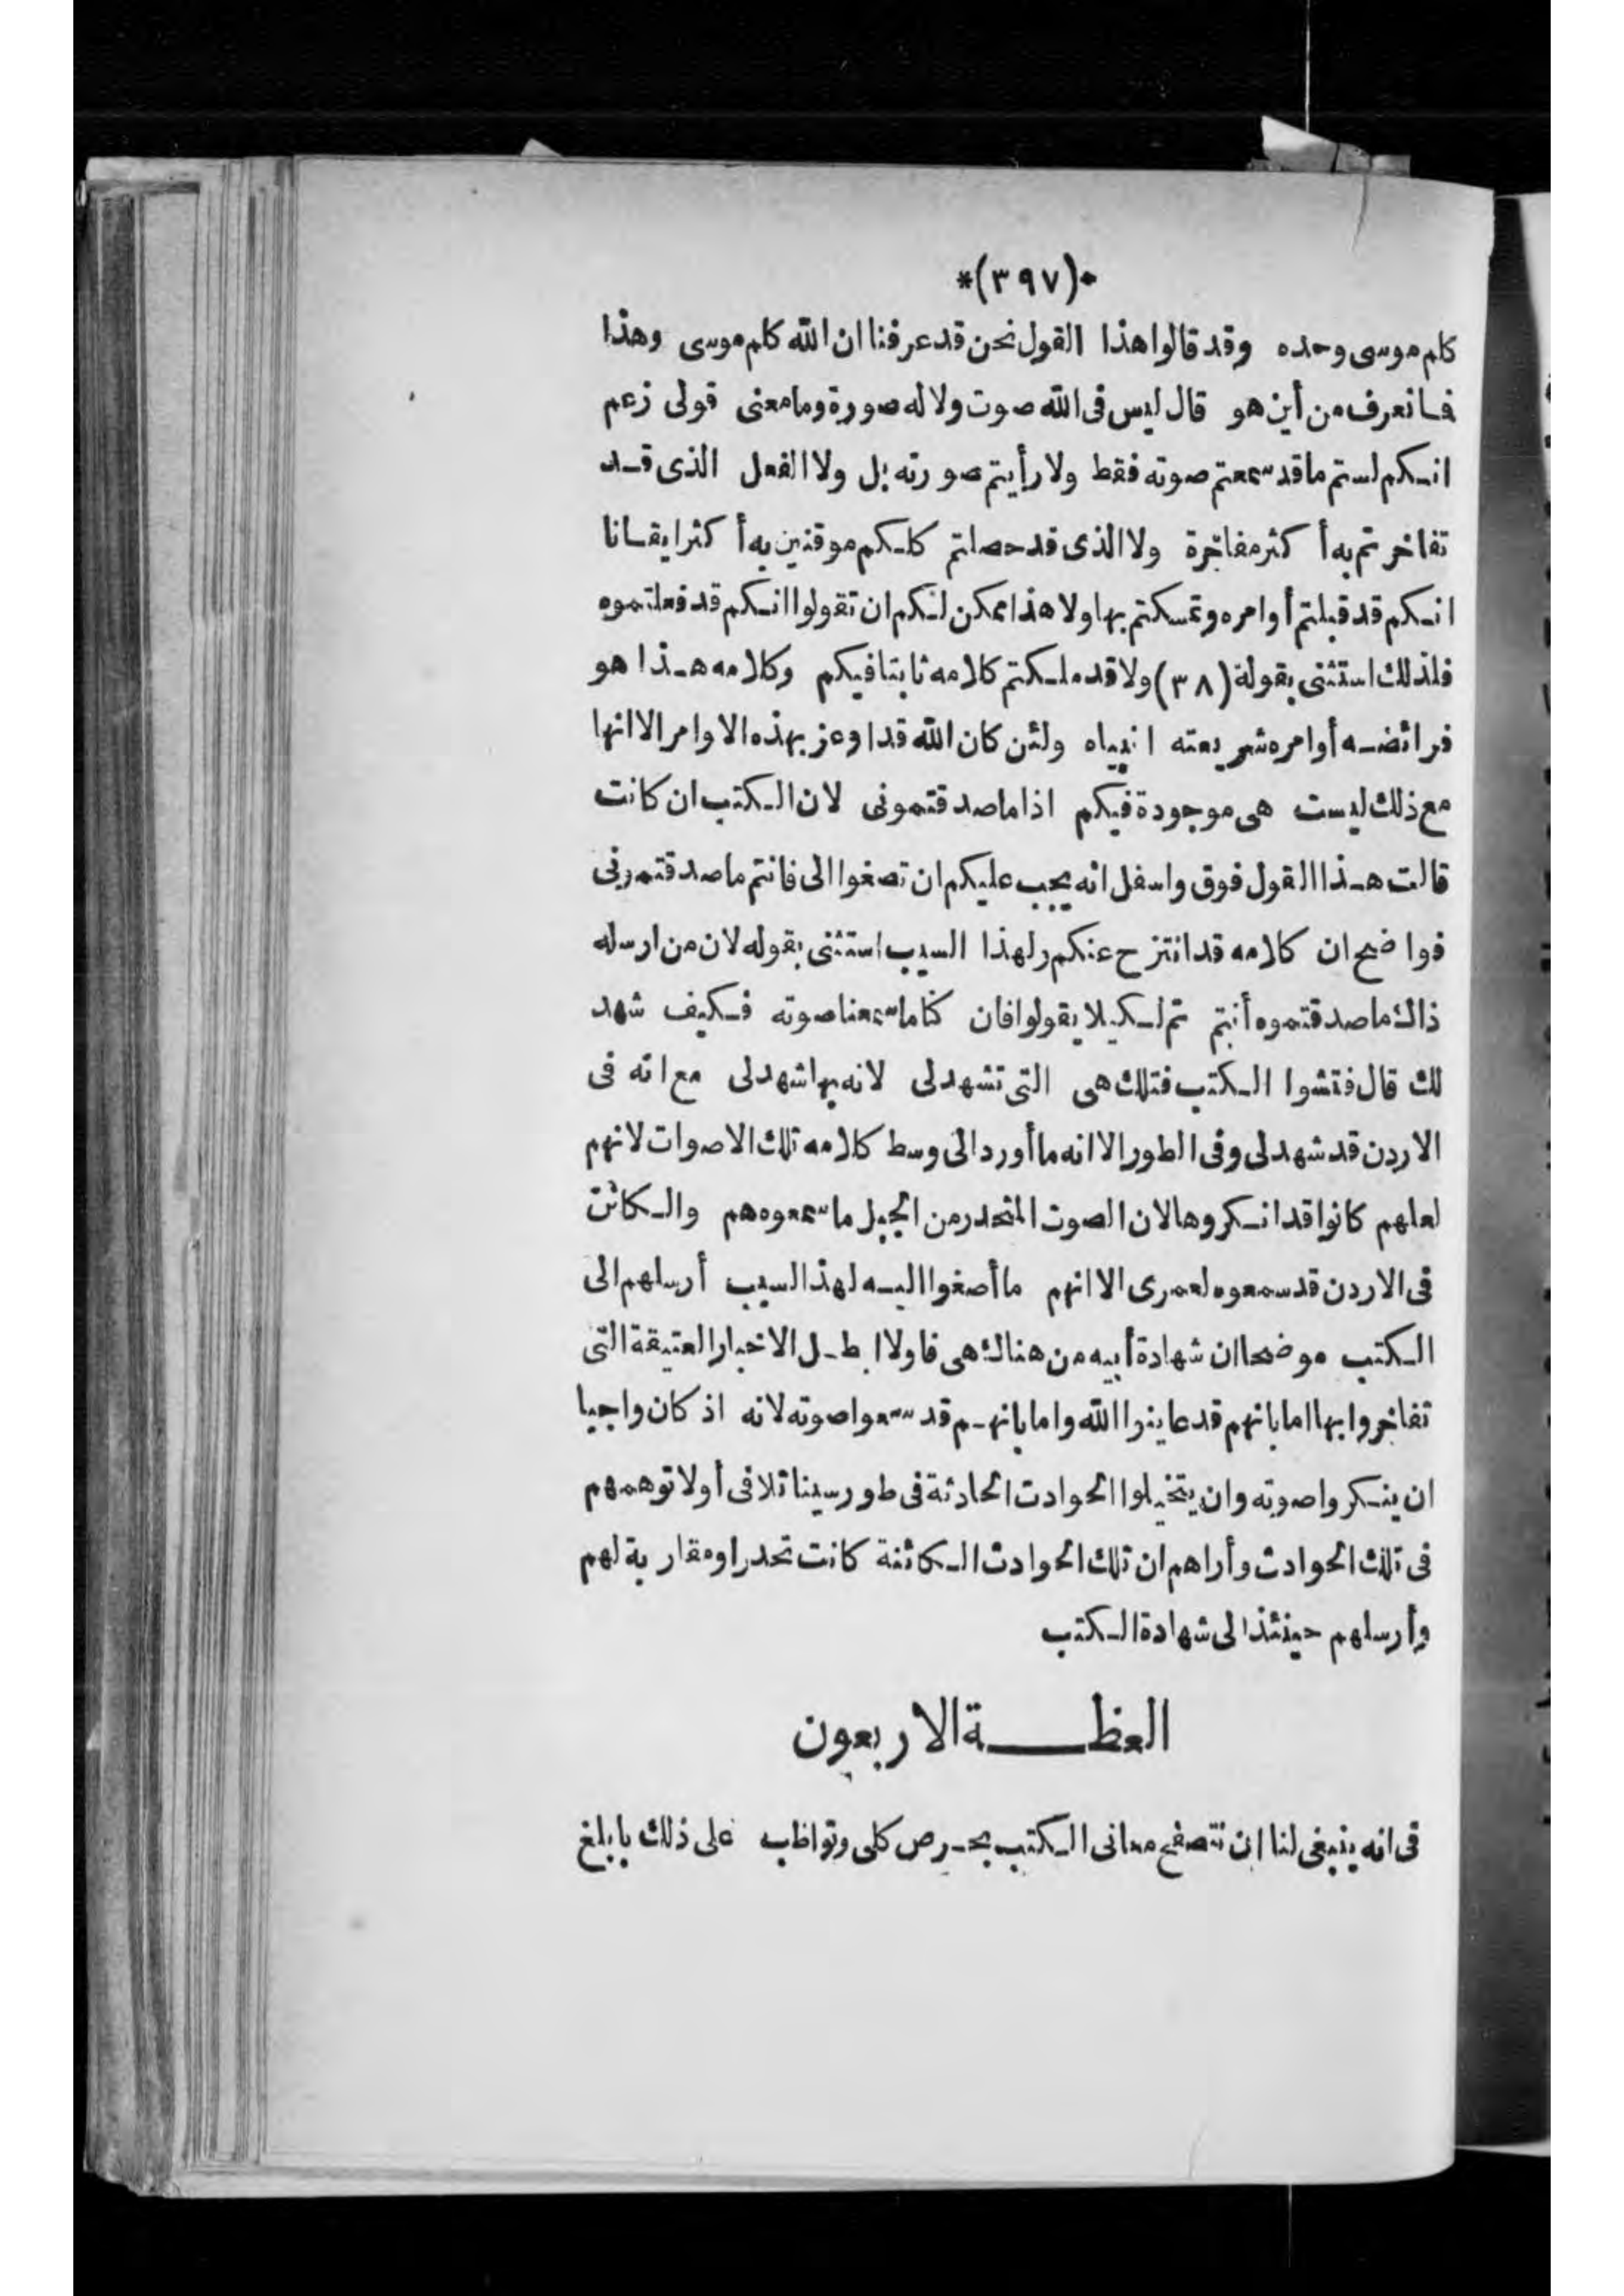 *(٣٩٧)*
كلم موسى وحده وقد قالوا هذا القول نحن قد عرفنا ان الله كلم موسى وهذا
فما نعرف من أين هو قال ليس فى الله صوت ولا له صورة وما معنى قولى زعم
انكم لستم ما قد سمعتم صوته فقط ولا رأيتم صورته بل ولا الفعل الذى قد
تفاخرتم به أكثر مفاخرة ولا الذى قد حصلتم كلكم موقنين به أكثر ايقانا
انكم قد قبلتم أوامره وتمسكتم بها ولا هذا ممكن لكم ان تقولوا انكم قد فعلتموه
فلذلك استثنى بقولة (٣٨) ولا قد ملكتم كلامه ثابتا فيكم وكلامه هذا هو
فرائضه أوامره شريعته انبياه ولئن كان الله قد اوعز بهذه الاوامر الا انها
مع ذلك ليست هى موجودة فيكم اذا ما صدقتمونى لان الكتب ان كانت
قالت هذا القول فوق واسفل انه يجب عليكم ان تصغوا الى فانتم ما صدقتمونى
فواضح ان كلامه قد انتزح عنكم ولهذا السبب استثنى بقوله لان من ارسله
ذاك ما صدقتموه أنتم ثم لكيلا يقولوا فان كنا ما سمعنا صوته فكيف شهد
لك قال فتشوا الكتب فتلك هى التى تشهد لى لانه بها شهد لى مع انه فى
الاردن قد شهد لى وفى الطور الا انه ما أورد الى وسط كلامه تلك الاصوات لانهم
لعلهم كانوا قد انكروها لان الصوت المتحدر من الجبل ما سمعوه هم والكائن
فى الاردن قد سمعوه لعمرى الا انهم ما أصغوا اليه لهذا السبب أرسلهم الى
الكتب موضحا ان شهادة أبيه من هناك هى فاولا ابطل الاخبار العتيقة التى
تفاخروا بها اما بانهم قد عاينوا الله واما بانهم قد سمعوا صوته لانه اذ كان واجبا
ان ينكروا صوته وان يتخيلوا الحوادث الحادثة فى طور سينا تلافى أولا توهمهم
فى تلك الحوادث وأراهم ان تلك الحوادث الكائنة كانت تحدرا ومقاربة لهم
وأرسلهم حينئذ الى شهادة الكتب
العظة الاربعون
فى انه ينبغى لنا ان نتصفح معانى الكتب بحرص كلى ونواظب على ذلك بابلغ